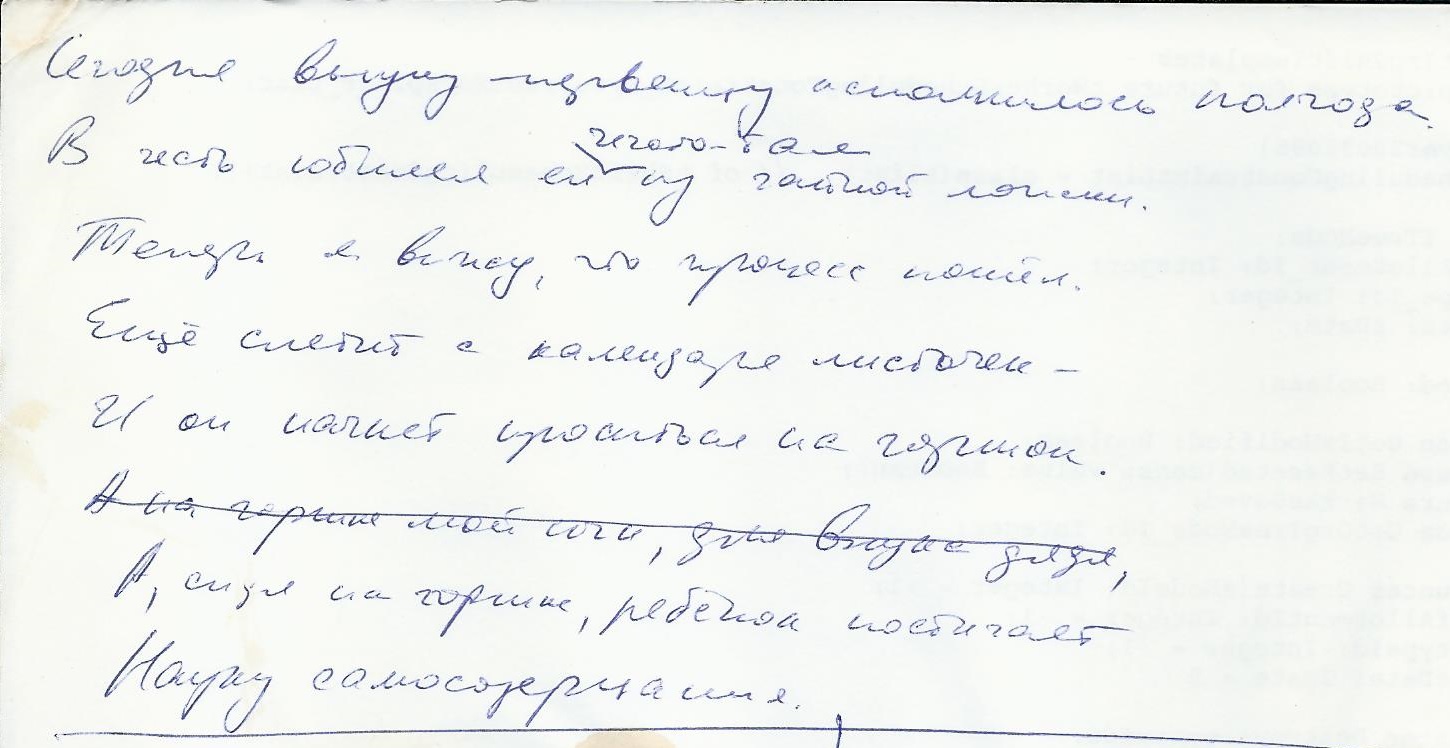 Сегодня внуку-первенцу исполнилось полгода.
чего-то там
В честь юбилея ел из чайной ложки.
Теперь я вижу, что процесс пошёл.
Ещё слетит с календаря листочек –
И он начнет проситься на горшок.
А на горшке мой сын, для внука дядя,
А, сидя на горшке, ребёнок постигает
Науку самосозерцания.